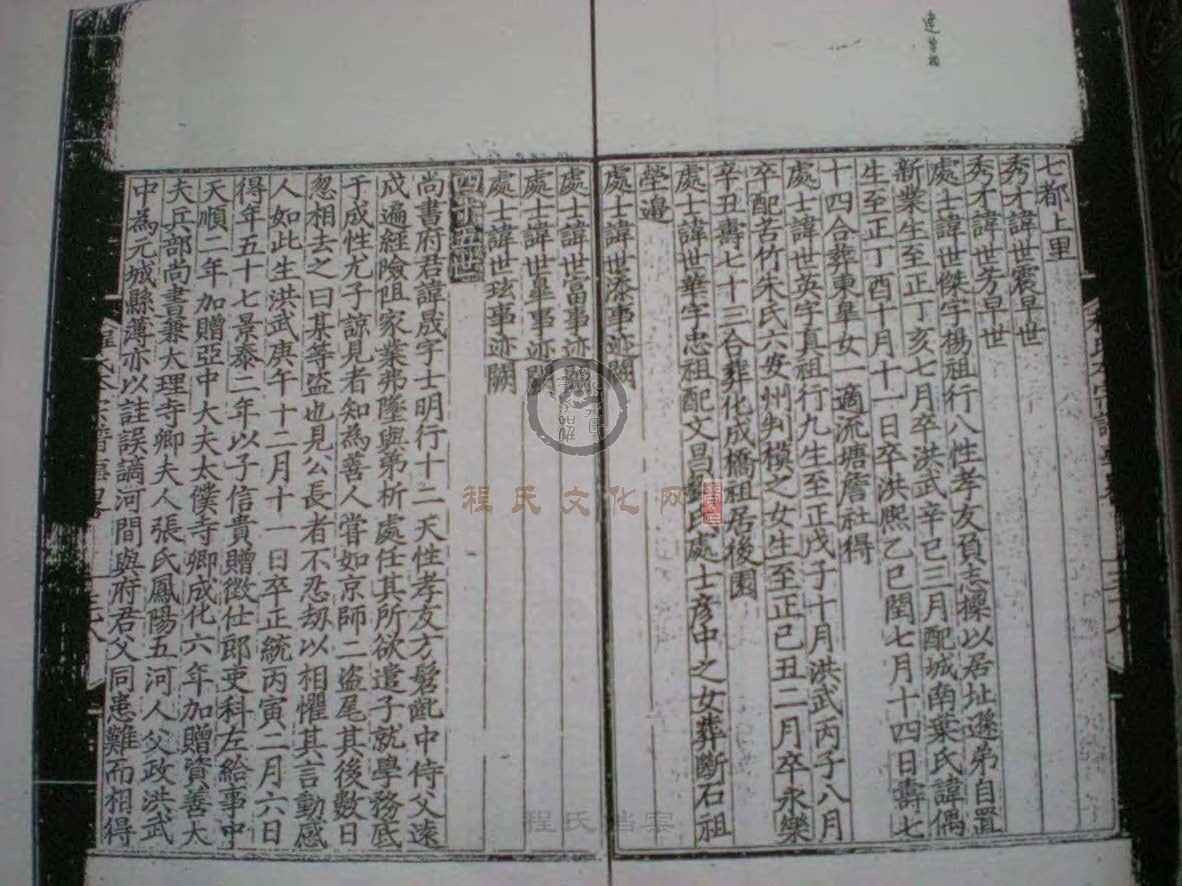 七都上里
秀才諱世震早世
秀才諱世芳早世
處士諱世傑字楊祖行八性孝友負志操以居址遜弟自置
新業生至正丁亥七月卒洪武辛巳三月配城南葉氏諱偶
生至正丁酉十月十一日卒洪熙乙巳閏七月十四日壽七
十四合葬東皐女一適流塘詹社得
處士諱世英字真祖行九生至正戊子十月洪武丙子八月
卒配苦竹朱氏六安州判模之女生至正己丑二月卒永樂
辛丑壽七十三合葬化成橋祖居後園
處士諱世華字忠祖配文昌 氏處士彥中之女葬斷石祖
塋邊
處士諱世 事迹闕
處士諱世富事迹
處士諱世皐事迹闕
處士諱世玹事迹闕
四十五世
尚書府君諱晟字士明行十二天性孝友方髫齔中侍父遠
戍遍經險阻家業弗墜與弟析處任其所欲遣子就學務底
于成性尤子諒見者知為善人嘗如京師二盜尾其後數日
忽相去之曰某等盜也見公長者不忍刼以相懼其言動感
人如此生洪武庚午十二月十一日卒正統丙寅二月六日
得年五十七景泰二年以子信貴贈徵仕郎吏科左給事中
天順二年加贈亞中大夫太僕寺卿成化六年加贈資善大
夫兵部尚書兼大理寺卿夫人張氏鳳陽五河人父政洪武
中為元城縣薄亦以註誤謫河間與府君父同患難而相得
程氏文化网
程氏